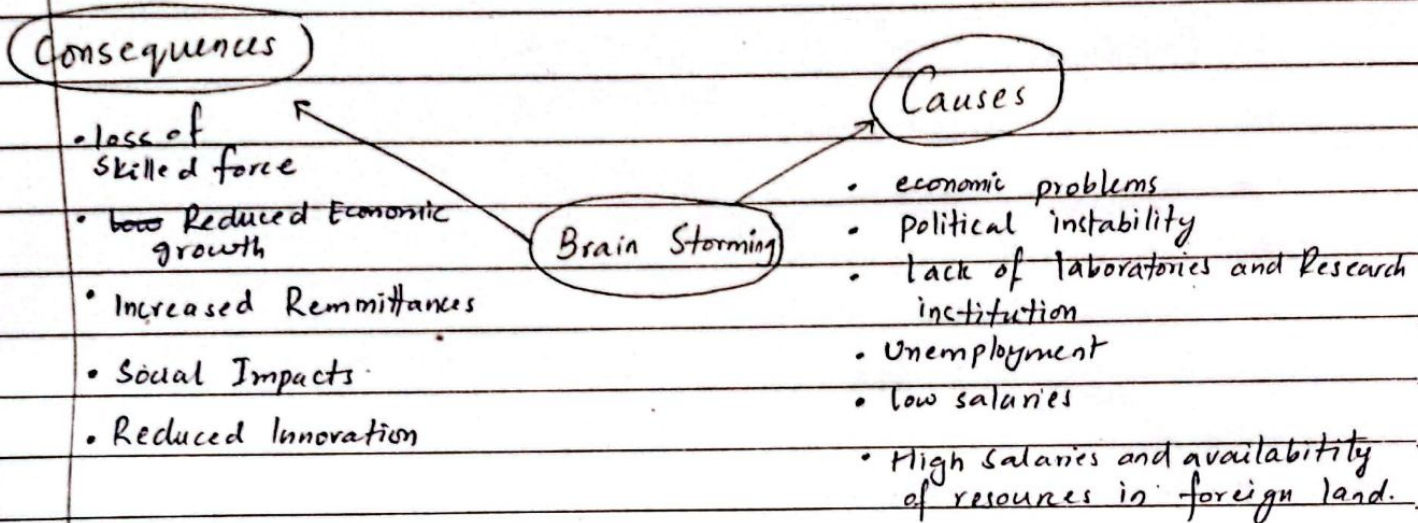 Consequences
• loss of
skilled force
• low Reduced Economic
growth
• Increased Remmittances
• Social Impacts.
• Reduced Innovation
Brain Storming
Causes
• economic problems
• Political instability
• lack of laboratories and Research
institution
• Unemployment
• low salaries
• High salaries and availabitity
of resources in foreign land.